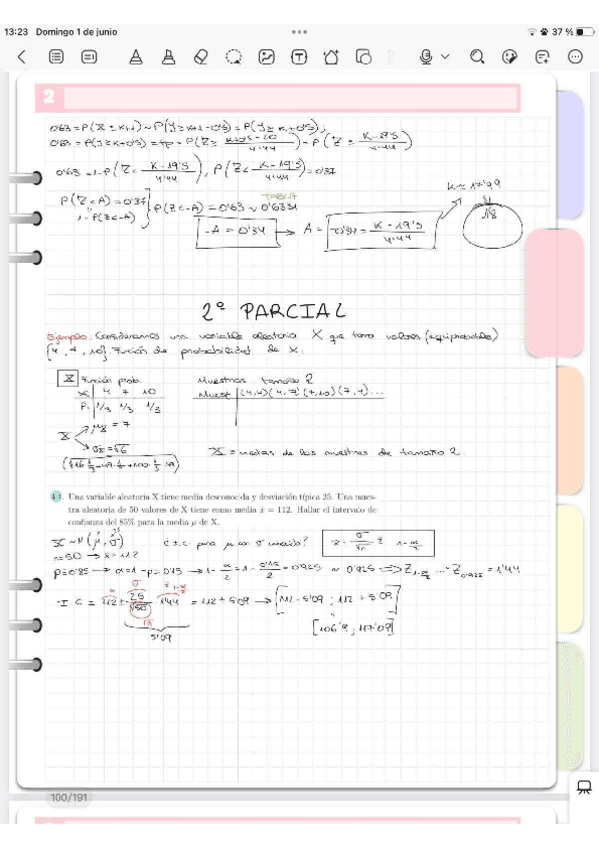 13:23 Domingo 1 de junio
37 %
2
0'63 = P(X ≥ k+1) ~ P(Y ≥ k+1-0'5) = P(Y ≥ k+0'5);
0'63 = P(Y ≥ k+0'5) = tip = P(Z ≥ (k+0'5-20)/4'44) = P(Z ≥ (k-19'5)/4'44)
0'63 = 1-P(Z < (k-19'5)/4'44), P(Z < (k-19'5)/4'44) = 0'37
P(Z<A) = 0'37
1-P(Z<-A)
P(Z<-A) = 0'63 ~ 0'6331
TABLA
-A = 0'34 → A = -0'34 = (k-19'5)/4'44
k = 17'99
18
2º PARCIAL
Ejemplo: Consideramos una variable aleatoria X que toma valores (equiprobables)
{4, 7, 10}. Función de probabilidad de X:
X Función prob.
X 4 7 10
P. 1/3 1/3 1/3
Muestras tamaño 2
Muest (4,4) (4,7) (7,10) (7,4) ...
X
μx = 7
σx = √6
X̄ = medias de las muestras de tamaño 2.
4.1. Una variable aleatoria X tiene media desconocida y desviación típica 25. Una mues-
tra aleatoria de 50 valores de X tiene como media x̄ = 112. Hallar el intervalo de
confianza del 85% para la media μ de X.
X ~ N(μ, σ)
n=50 → x̄ = 112
p=0'85 → α=1-p=0'15 → 1-α/2 = 1-0'15/2 = 0'925 ~ 0'925 ⇒ Z1-α/2 ... ~ Z0'925 = 1'44
I C = 112 ± 25/√50 · 1'44 = 112 ± 5'09 → [112-5'09 ; 112+5'09]
5'09
[106'9 ; 117'09]
100/191